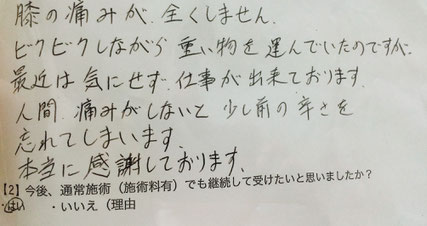 膝の痛みが、全くしません。
ビクビクしながら重い物を運んでいたのですが、
最近は気にせず、仕事が出来ております。
人間、痛みがしないと少し前の辛さを
忘れてしまいます。
本当に感謝しております。
【2】今後、通常施術（施術料有）でも継続して受けたいと思いましたか？
・はい ・いいえ（理由